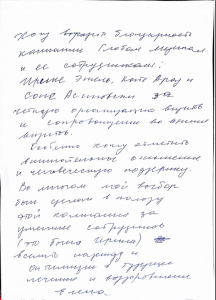 Хочу выразить благодарность
компании Глобал Медикал
и ее сотрудникам:
Ирине Эшель, Кате Врад и
Соне Аслановки за
четкую организацию визита
и сопровождение во время
визита.
Особенно хочу отметить
внимательное отношение
и человеческую поддержку.
Во многом мой выбор
был сделан в пользу
этой компании за
умение сотрудников
(это была Ирина)
вселить надежду и
оптимизм в будущее
лечение и выздоровление
Елена